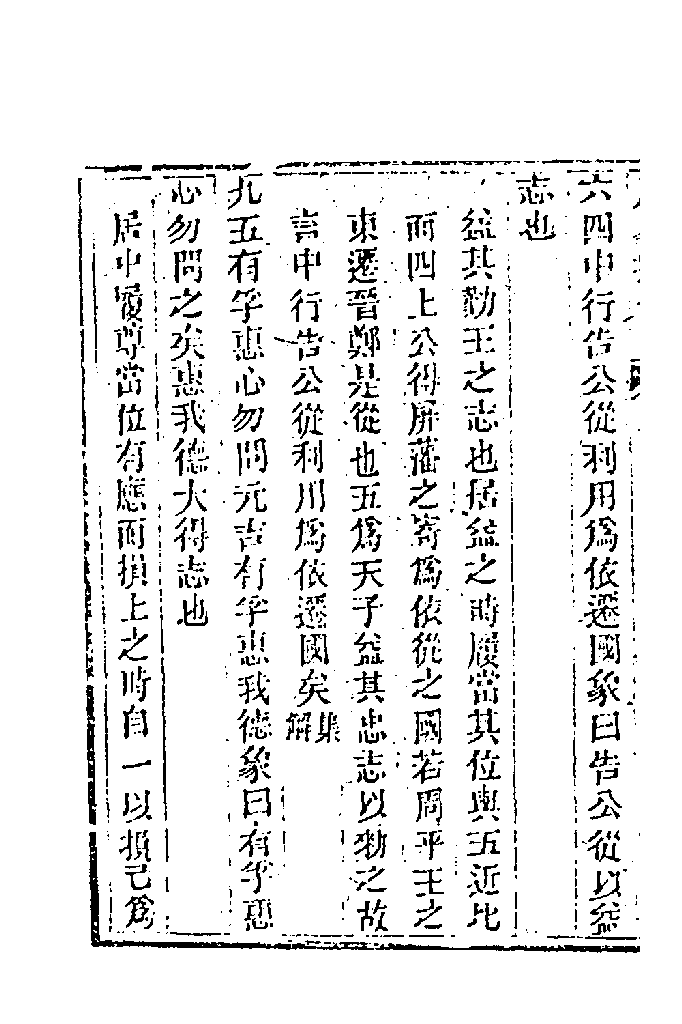 六四中行告公從利用爲依遷國象曰告公從以益
志也
益其勤王之志也居益之時履當其位與五近比
而四上公得屏藩之寄爲依從之國若周平王之
東遷晉鄭是從也五爲天子益其忠志以勑之故
言中行告公從利用爲依遷國矣集解
九五有孚惠心勿問元吉有孚惠我德象曰有孚惠
心勿問之矣惠我德大得志也
居中履尊當位有應而損上之時自一以損己爲